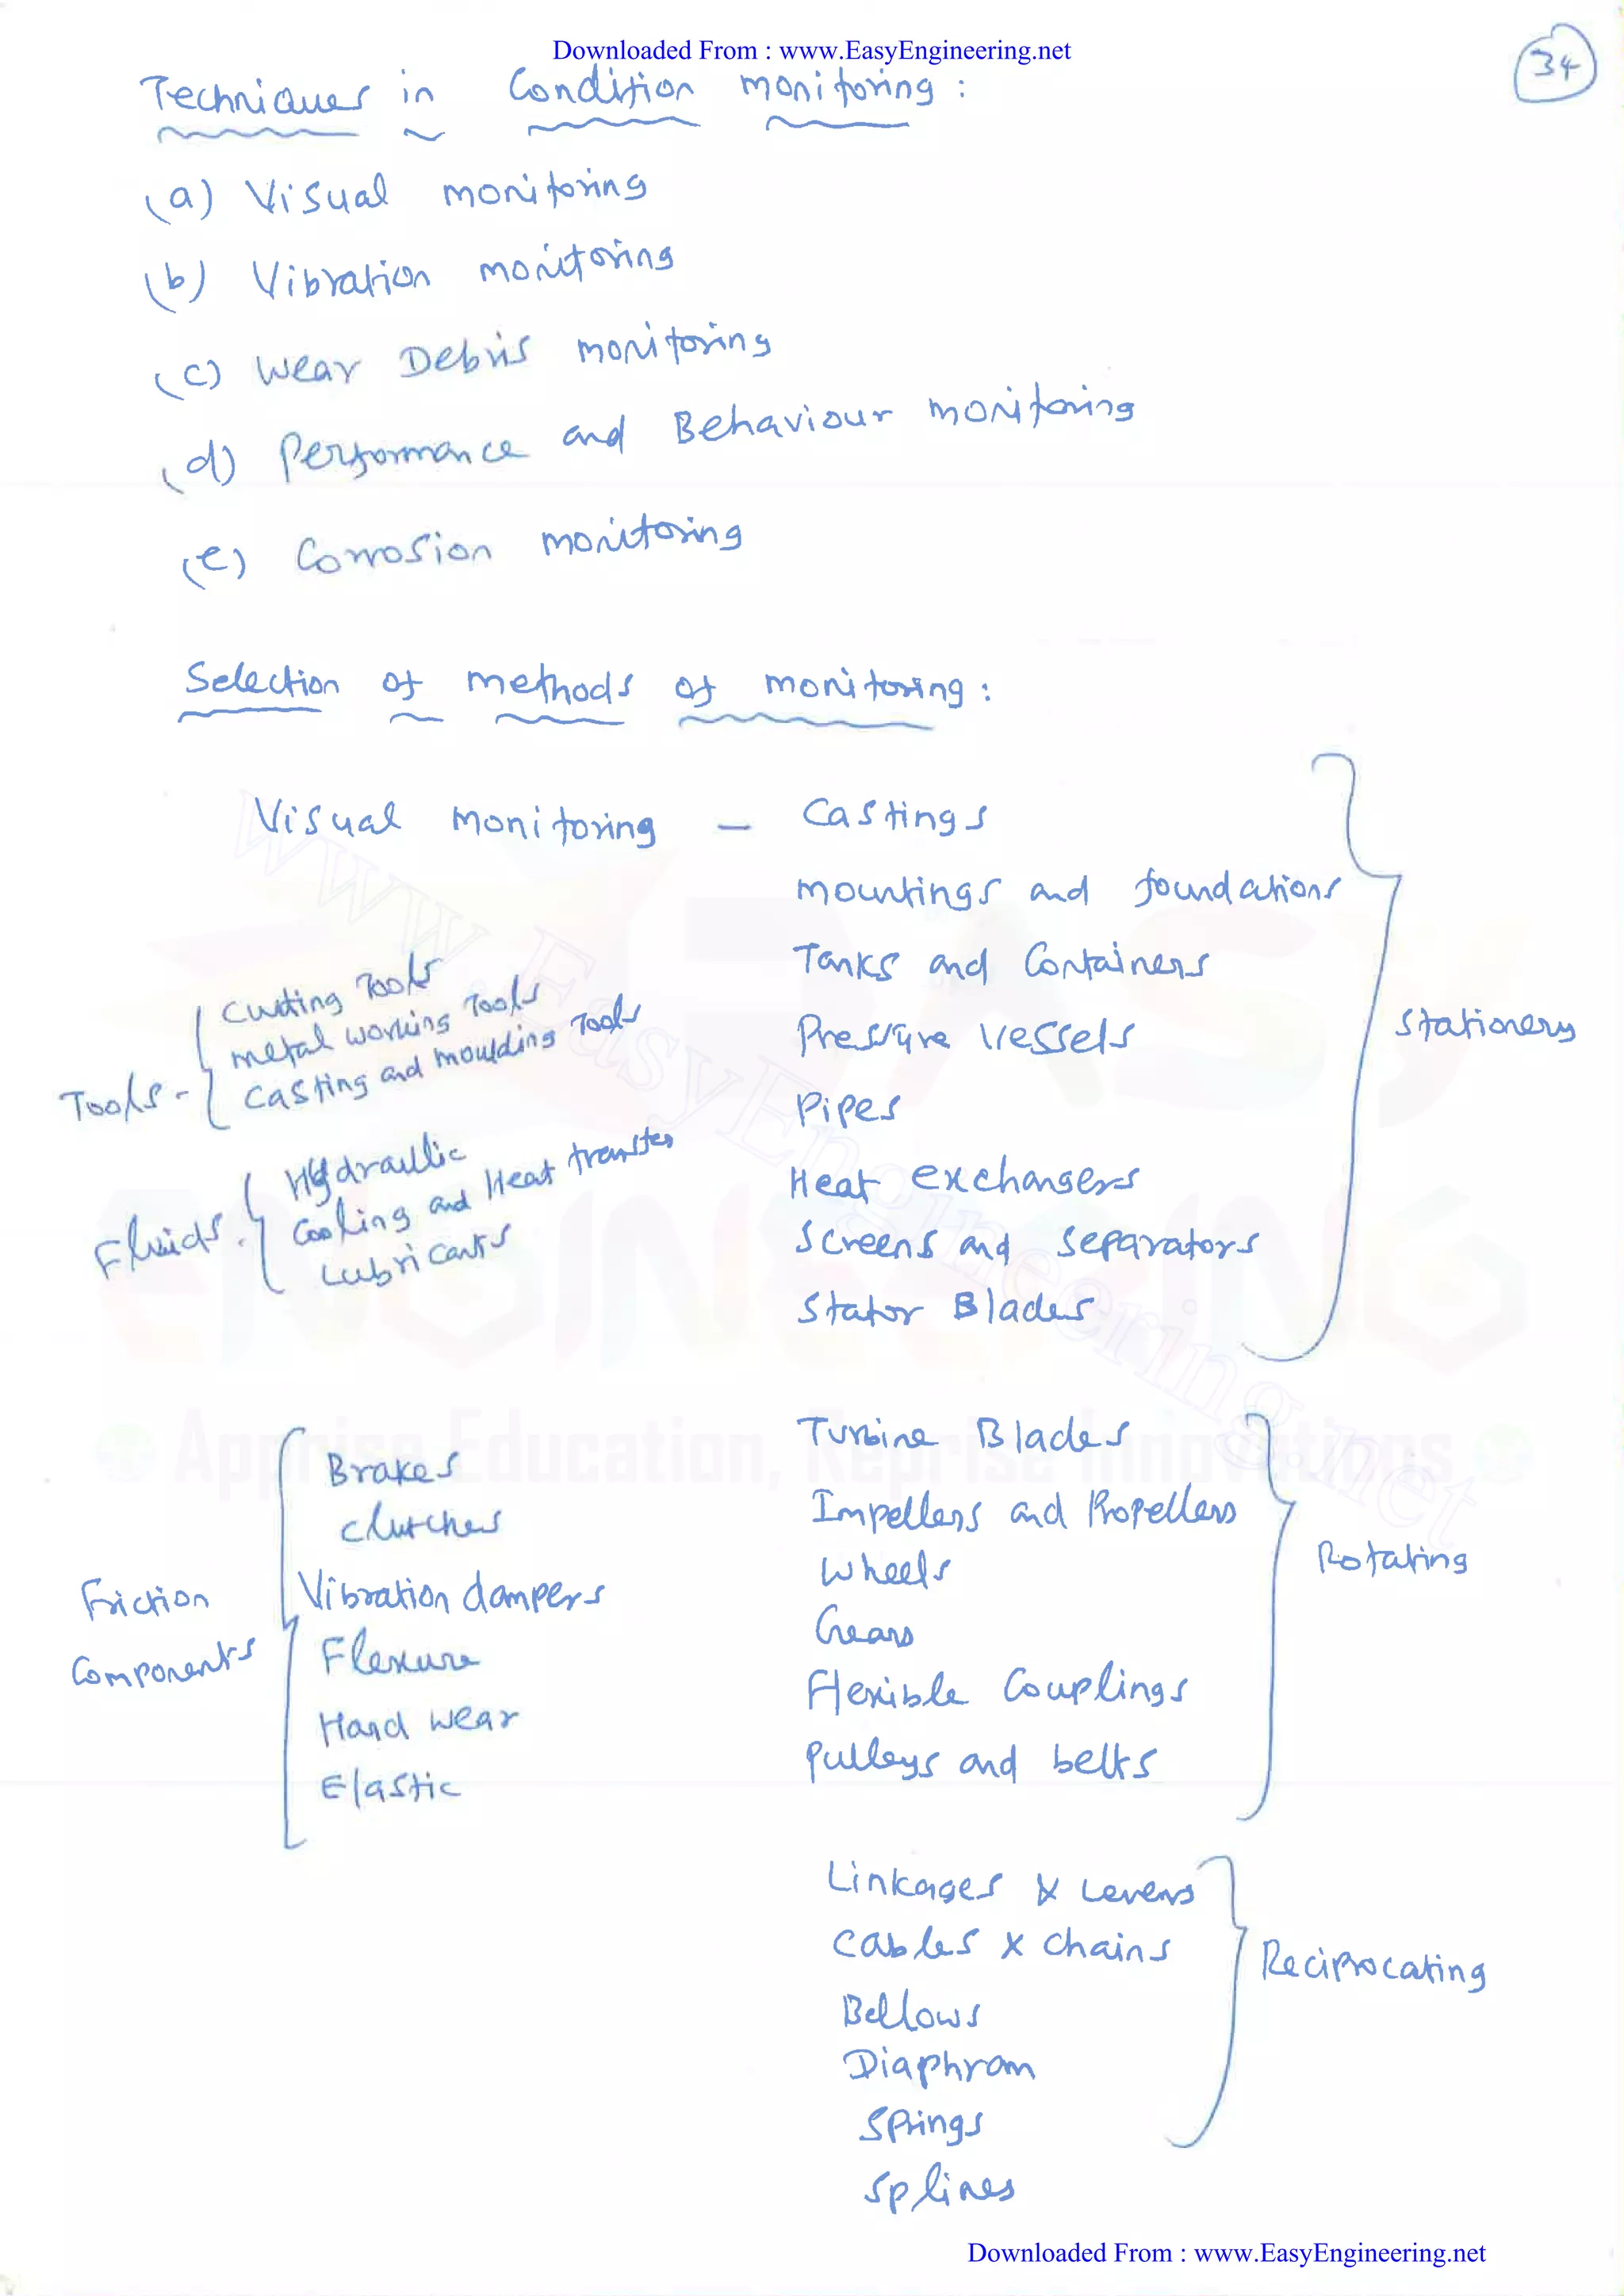 Downloaded From : www.EasyEngineering.net
34
Techniques in Condition monitoring :
(a) Visual monitoring
(b) Vibration monitoring
(c) Wear Debris monitoring
(d) Performance and Behaviour monitoring
(e) Corrosion monitoring
Selection of methods of monitoring :
Visual monitoring - Castings
mountings and foundations
Tanks and Containers
Pressure Vessels
Pipes
Heat exchangers
Screens and Separators
Stator Blades
Stationery
Tools - Cutting Tools
metal working Tools
Casting and moulding Tools
Fluids - Hydraulic
Cooling and Heat transfer
Lubricants
Turbine Blades
Impellers and Propellers
Wheels
Gears
Flexible Couplings
Pulleys and belts
Rotating
Friction
Components
Brakes
Clutches
Vibration dampers
Flexure
Hand wear
Elastic
Linkages & Levers
Cables & Chains
Bellows
Diaphram
Springs
Splines
Reciprocating
www.EasyEngineering.net
EASY
ENGINEERING
Apprise Education, Reprise Innovations
Downloaded From : www.EasyEngineering.net